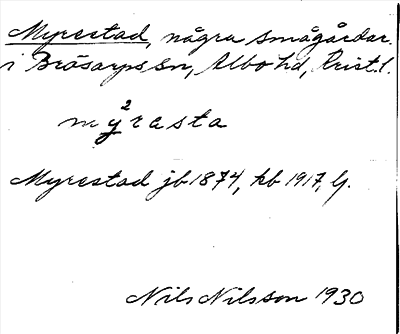 Myrestad, några smågårdar.
i Bråsarps sn, Albo hd, Krist. l.
my²rasta
Myrestad jb 1874, kb 1917, G.
Nils Nilsson 1930